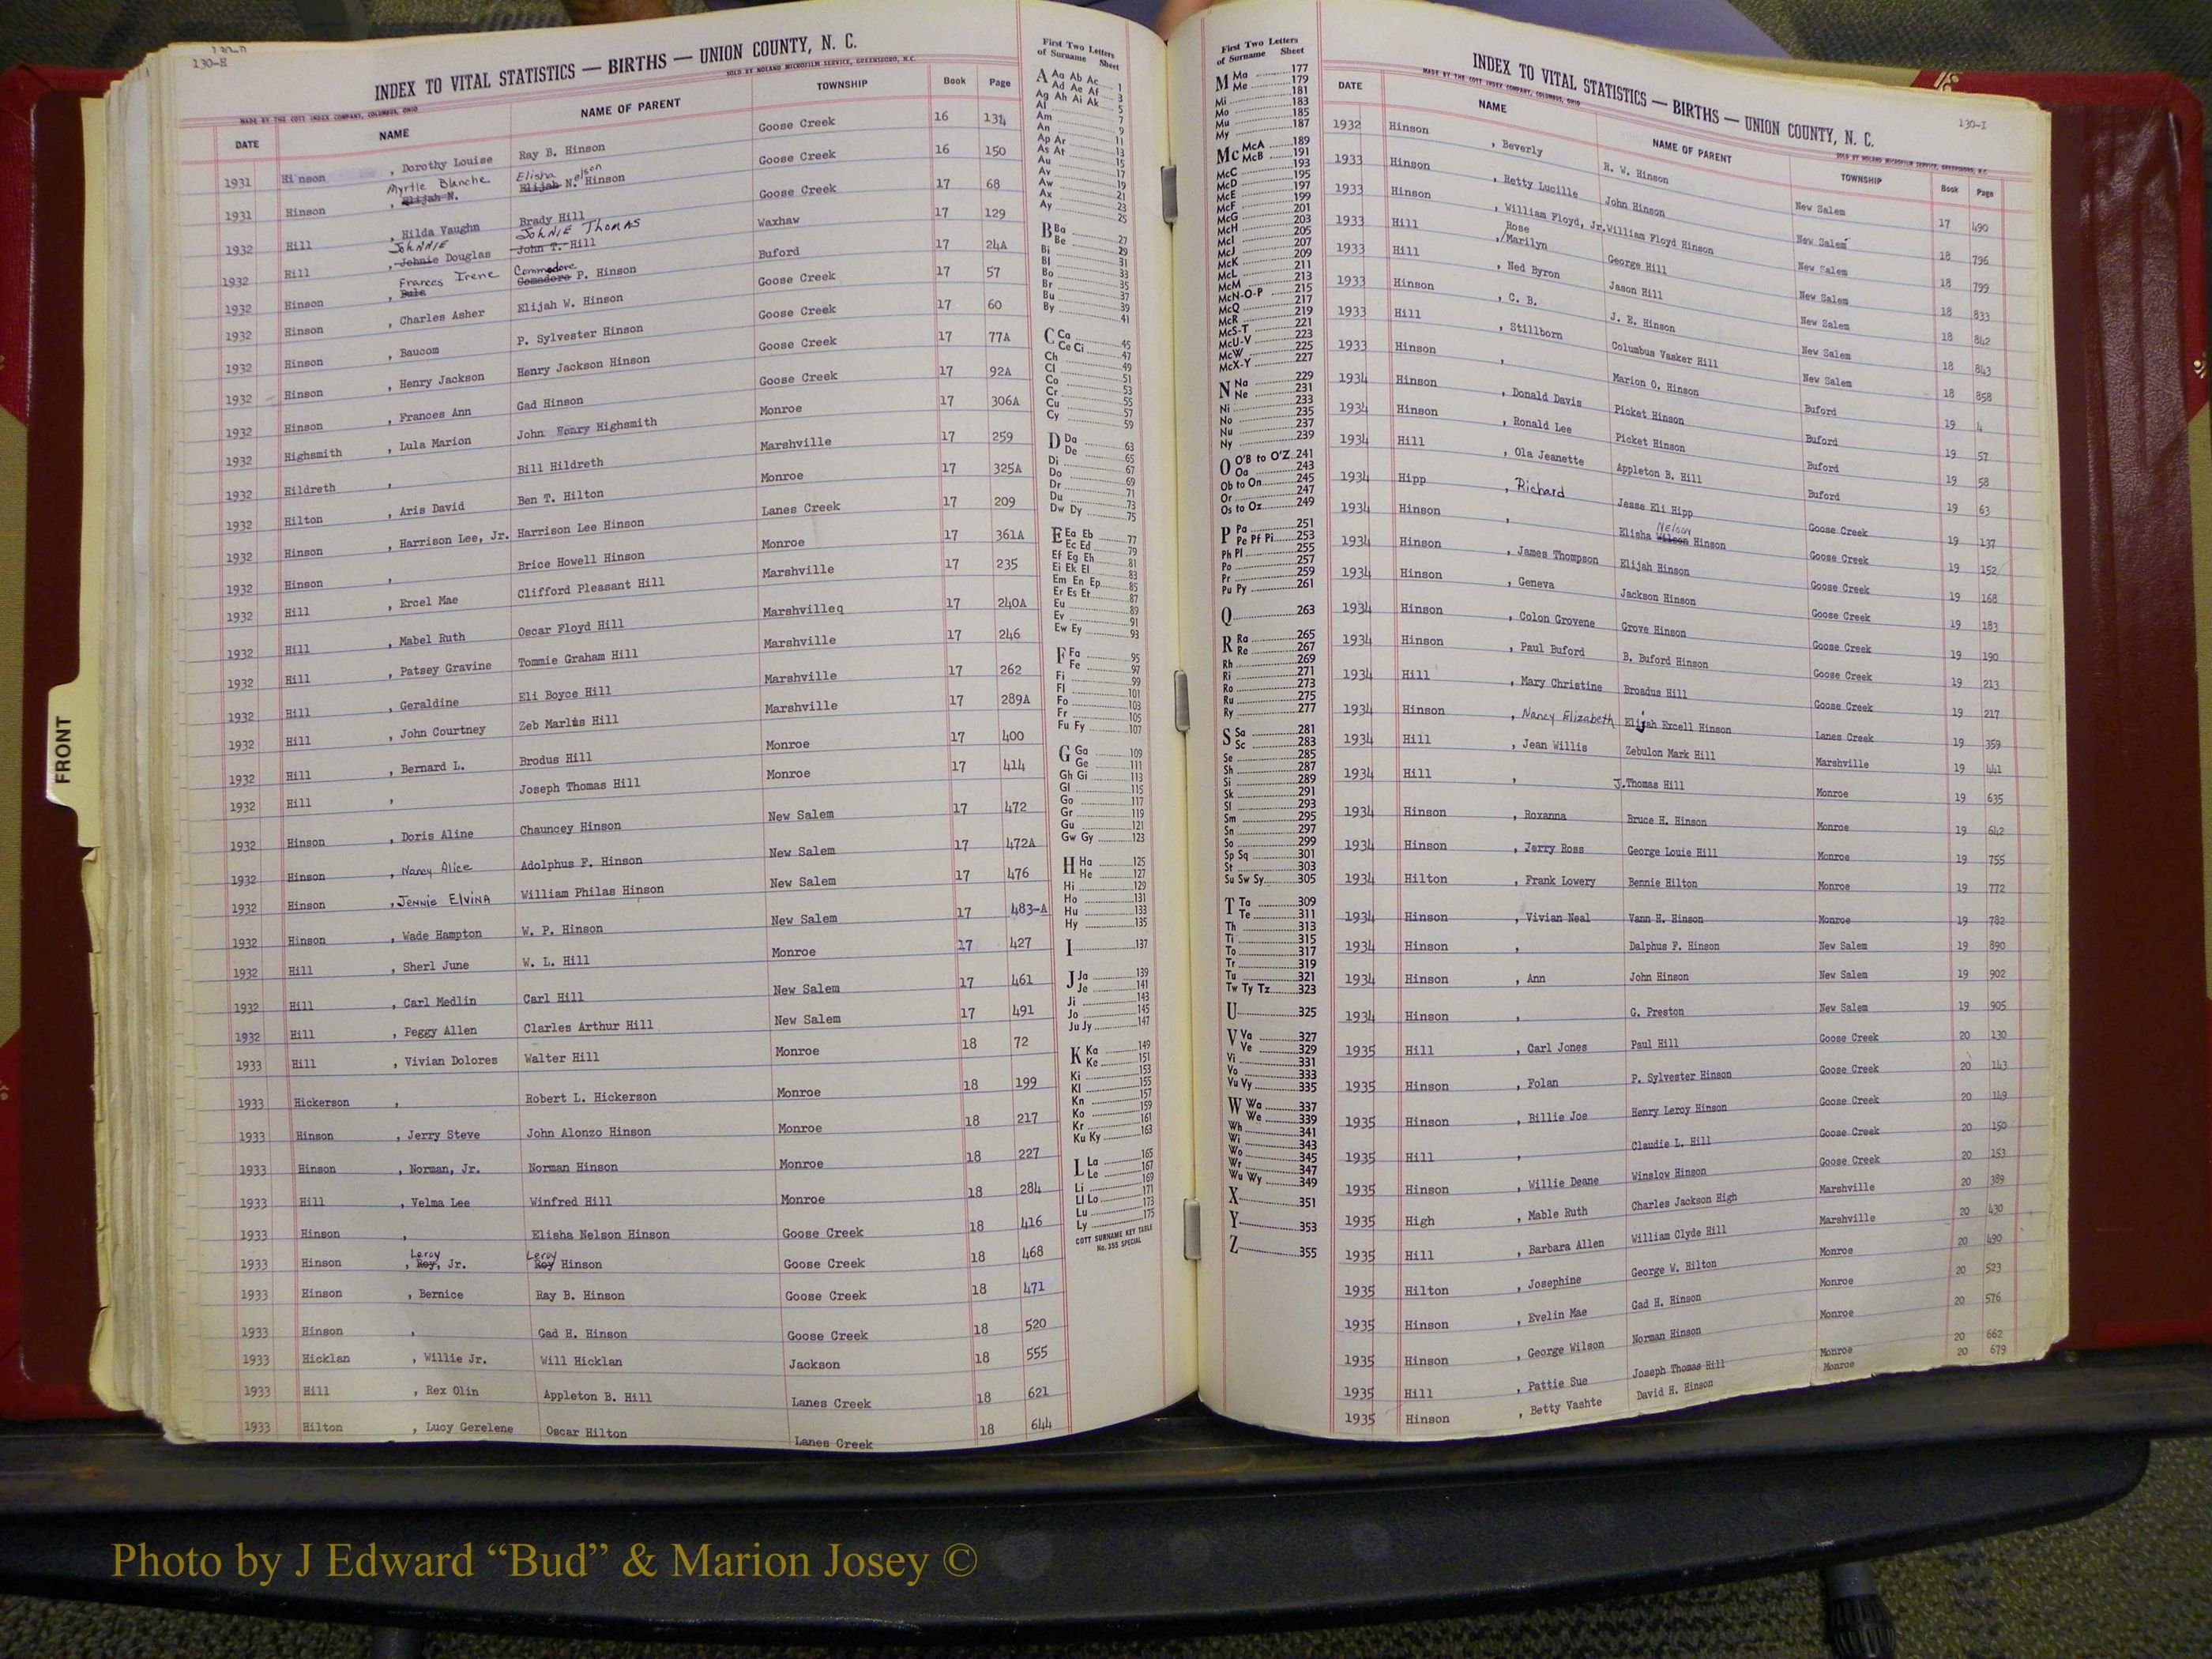 130-H
INDEX TO VITAL STATISTICS — BIRTHS — UNION COUNTY, N. C.
MADE BY THE COTT INDEX COMPANY, COLUMBUS, OHIO SOLD BY NOLAND MICROFILM SERVICE, GREENSBORO, N.C.
DATE NAME NAME OF PARENT TOWNSHIP Book Page
1931 Hinson , Dorothy Louise Ray B. Hinson Goose Creek 16 131
Myrtle Blanche Elisha elson
1931 Hinson , Elijah N. Elijah N. Hinson Goose Creek 16 150
1932 Hill , Hilda Vaughn Brady Hill Goose Creek 17 68
JOHNNIE JOHNIE THOMAS
1932 Hill , Johnie Douglas John T. Hill Waxhaw 17 129
Frances Irene Commodore
1932 Hinson , Comadoro P. Hinson Buford 17 24A
1932 Hinson , Charles Asher Elijah W. Hinson Goose Creek 17 57
1932 Hinson , Baucom P. Sylvester Hinson Goose Creek 17 60
1932 Hinson , Henry Jackson Henry Jackson Hinson Goose Creek 17 77A
1932 Hinson , Frances Ann Gad Hinson Goose Creek 17 92A
1932 Highsmith , Lula Marion John Henry Highsmith Monroe 17 306A
1932 Hildreth , Bill Hildreth Marshville 17 259
1932 Hilton , Aris David Ben T. Hilton Monroe 17 325A
1932 Hinson , Harrison Lee, Jr. Harrison Lee Hinson Lanes Creek 17 209
1932 Hinson , Brice Howell Hinson Monroe 17 361A
1932 Hill , Ercel Mae Clifford Pleasant Hill Marshville 17 235
1932 Hill , Mabel Ruth Oscar Floyd Hill Marshvilleq 17 240A
1932 Hill , Patsey Gravine Tommie Graham Hill Marshville 17 246
1932 Hill , Geraldine Eli Boyce Hill Marshville 17 262
1932 Hill , John Courtney Zeb Marlus Hill Marshville 17 289A
1932 Hill , Bernard L. Brodus Hill Monroe 17 400
1932 Hill , Joseph Thomas Hill Monroe 17 414
1932 Hinson , Doris Aline Chauncey Hinson New Salem 17 472
1932 Hinson , Nancy Alice Adolphus F. Hinson New Salem 17 472A
1932 Hinson , JENNIE ElVINA William Philas Hinson New Salem 17 476
1932 Hinson , Wade Hampton W. P. Hinson New Salem 17 483-A
1932 Hill , Sherl June W. L. Hill Monroe 17 427
1932 Hill , Carl Medlin Carl Hill New Salem 17 461
1932 Hill , Peggy Allen Clarles Arthur Hill New Salem 17 491
1933 Hill , Vivian Dolores Walter Hill Monroe 18 72
1933 Hickerson , Robert L. Hickerson Monroe 18 199
1933 Hinson , Jerry Steve John Alonzo Hinson Monroe 18 217
1933 Hinson , Norman, Jr. Norman Hinson Monroe 18 227
1933 Hill , Velma Lee Winfred Hill Monroe 18 284
1933 Hinson , Elisha Nelson Hinson Goose Creek 18 416
Leroy Leroy
1933 Hinson , Roy, Jr. Roy Hinson Goose Creek 18 468
1933 Hinson , Bernice Ray B. Hinson Goose Creek 18 471
1933 Hinson , Gad H. Hinson Goose Creek 18 520
1933 Hicklan , Willie Jr. Will Hicklan Jackson 18 555
1933 Hill , Rex Olin Appleton B. Hill Lanes Creek 18 621
1933 Hilton , Lucy Gerelene Oscar Hilton Lanes Creek 18 644
First Two Letters
of Surname Sheet
A Aa Ab Ac 1
Ad Ae Af 3
Ag Ah Ai Ak 5
Al 7
Am 9
An 11
Ap Ar 13
As At 15
Au 17
Av 19
Aw 21
Ax 23
Ay 25
B Ba 27
Be 29
Bi 31
Bl 33
Bo 35
Br 37
Bu 39
By 41
C Ca 45
Ce Ci 47
Ch 49
Cl 51
Co 53
Cr 55
Cu 57
Cy 59
D Da 63
De 65
Di 67
Do 69
Dr 71
Du 73
Dw Dy 75
E Ea Eb 77
Ec Ed 79
Ef Eg Eh 81
Ei Ek El 83
Em En Ep 85
Er Es Et 87
Eu 89
Ev 91
Ew Ey 93
F Fa 95
Fe 97
Fi 99
Fl 101
Fo 103
Fr 105
Fu Fy 107
G Ga 109
Ge 111
Gh Gi 113
Gl 115
Go 117
Gr 119
Gu 121
Gw Gy 123
H Ha 125
He 127
Hi 129
Ho 131
Hu 133
Hy 135
I 137
J Ja 139
Je 141
Ji 143
Jo 145
Ju Jy 147
K Ka 149
Ke 151
Ki 153
Kl 155
Kn 157
Ko 159
Kr 161
Ku Ky 163
L La 165
Le 167
Li 169
Ll Lo 171
Lu 173
Ly 175
COTT SURNAME KEY TABLE
No. 355 SPECIAL
First Two Letters
of Surname Sheet
M Ma 177
Me 179
Mi 181
Mo 183
Mu 185
My 187
Mc McA 189
McB 191
McC 193
McD 195
McE 197
McF 199
McG 201
McH 203
McI 205
McJ 207
McK 209
McL 211
McM 213
McN-O-P 215
McQ 217
McR 219
McS-T 221
McU-V 223
McW 225
McX-Y 227
N Na 229
Ne 231
Ni 233
No 235
Nu 237
Ny 239
O O'B to O'Z 241
Oa 243
Ob to On 245
Or 247
Os to Oz 249
P Pa 251
Pe Pf Pi 253
Ph Pl 255
Po 257
Pr 259
Pu Py 261
Q 263
R Ra 265
Re 267
Rh 269
Ri 271
Ro 273
Ru 275
Ry 277
S Sa 281
Sc 283
Se 285
Sh 287
Si 289
Sk 291
Sl 293
Sm 295
Sn 297
So 299
Sp Sq 301
St 303
Su Sw Sy 305
T Ta 309
Te 311
Th 313
Ti 315
To 317
Tr 319
Tu 321
Tw Ty Tz 323
U 325
V Va 327
Ve 329
Vi 331
Vo 333
Vu Vy 335
W Wa 337
We 339
Wh 341
Wi 343
Wo 345
Wr 347
Wu Wy 349
X 351
Y 353
Z 355
130-I
INDEX TO VITAL STATISTICS — BIRTHS — UNION COUNTY, N. C.
MADE BY THE COTT INDEX COMPANY, COLUMBUS, OHIO SOLD BY NOLAND MICROFILM SERVICE, GREENSBORO, N.C.
DATE NAME NAME OF PARENT TOWNSHIP Book Page
1932 Hinson , Beverly R. W. Hinson New Salem 17 490
1933 Hinson , Betty Lucille John Hinson New Salem 18 796
1933 Hinson , William Floyd, Jr. William Floyd Hinson New Salem 18 799
Rose
1933 Hill , /Marilyn George Hill New Salem 18 833
1933 Hill , Ned Byron Jason Hill New Salem 18 842
1933 Hinson , C. B. J. E. Hinson New Salem 18 843
1933 Hill , Stillborn Columbus Vasker Hill New Salem 18 858
1933 Hinson , Marion O. Hinson Buford 19 4
1934 Hinson , Donald Davis Picket Hinson Buford 19 57
1934 Hinson , Ronald Lee Picket Hinson Buford 19 58
1934 Hill , Ola Jeanette Appleton B. Hill Buford 19 63
1934 Hipp , Richard Jesse Eli Hipp Goose Creek 19 137
Nelson
1934 Hinson , Elisha Wilson Hinson Goose Creek 19 152
1934 Hinson , James Thompson Elijah Hinson Goose Creek 19 168
1934 Hinson , Geneva Jackson Hinson Goose Creek 19 183
1934 Hinson , Colon Grovene Grove Hinson Goose Creek 19 190
1934 Hinson , Paul Buford B. Buford Hinson Goose Creek 19 213
1934 Hill , Mary Christine Broadus Hill Goose Creek 19 217
1934 Hinson , Nancy Elizabeth Elijah Excell Hinson Lanes Creek 19 359
1934 Hill , Jean Willis Zebulon Mark Hill Marshville 19 441
1934 Hill , J.Thomas Hill Monroe 19 635
1934 Hinson , Roxanna Bruce H. Hinson Monroe 19 642
1934 Hinson , Jerry Ross George Louie Hill Monroe 19 755
1934 Hilton , Frank Lowery Bennie Hilton Monroe 19 772
1934 Hinson , Vivian Neal Vann H. Hinson Monroe 19 782
1934 Hinson , Dalphus F. Hinson New Salem 19 890
1934 Hinson , Ann John Hinson New Salem 19 902
1934 Hinson , G. Preston New Salem 19 905
1935 Hill , Carl Jones Paul Hill Goose Creek 20 130
1935 Hinson , Folan P. Sylvester Hinson Goose Creek 20 143
1935 Hinson , Billie Joe Henry Leroy Hinson Goose Creek 20 149
1935 Hill , Claudie L. Hill Goose Creek 20 150
1935 Hinson , Willie Deane Winslow Hinson Goose Creek 20 153
1935 High , Mable Ruth Charles Jackson High Marshville 20 389
1935 Hill , Barbara Allen William Clyde Hill Marshville 20 430
1935 Hilton , Josephine George W. Hilton Monroe 20 490
1935 Hinson , Evelin Mae Gad H. Hinson Monroe 20 523
1935 Hinson , George Wilson Norman Hinson Monroe 20 576
1935 Hill , Pattie Sue Joseph Thomas Hill Monroe 20 662
1935 Hinson , Betty Vashte David H. Hinson Monroe 20 679
FRONT
Photo by J Edward “Bud” & Marion Josey ©